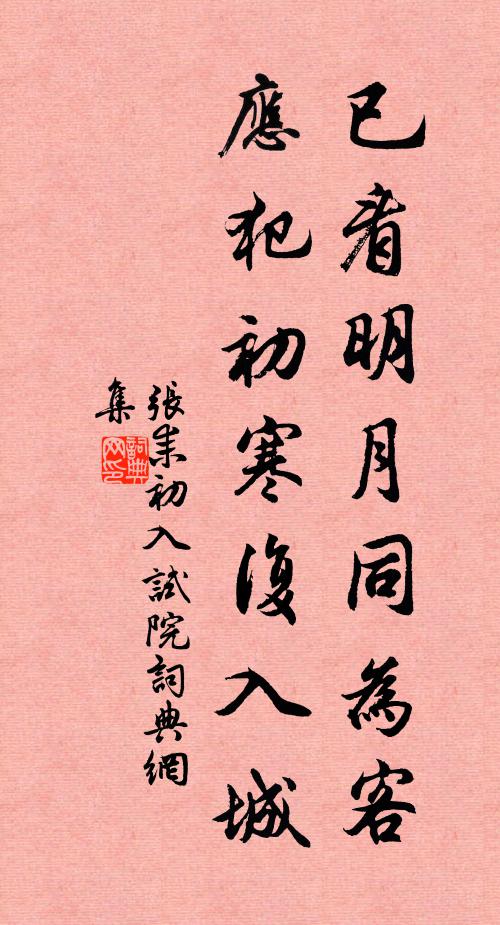 已看明月同為客
應犯初寒復入城
張耒初入試院詞典網
集
詞典
網印